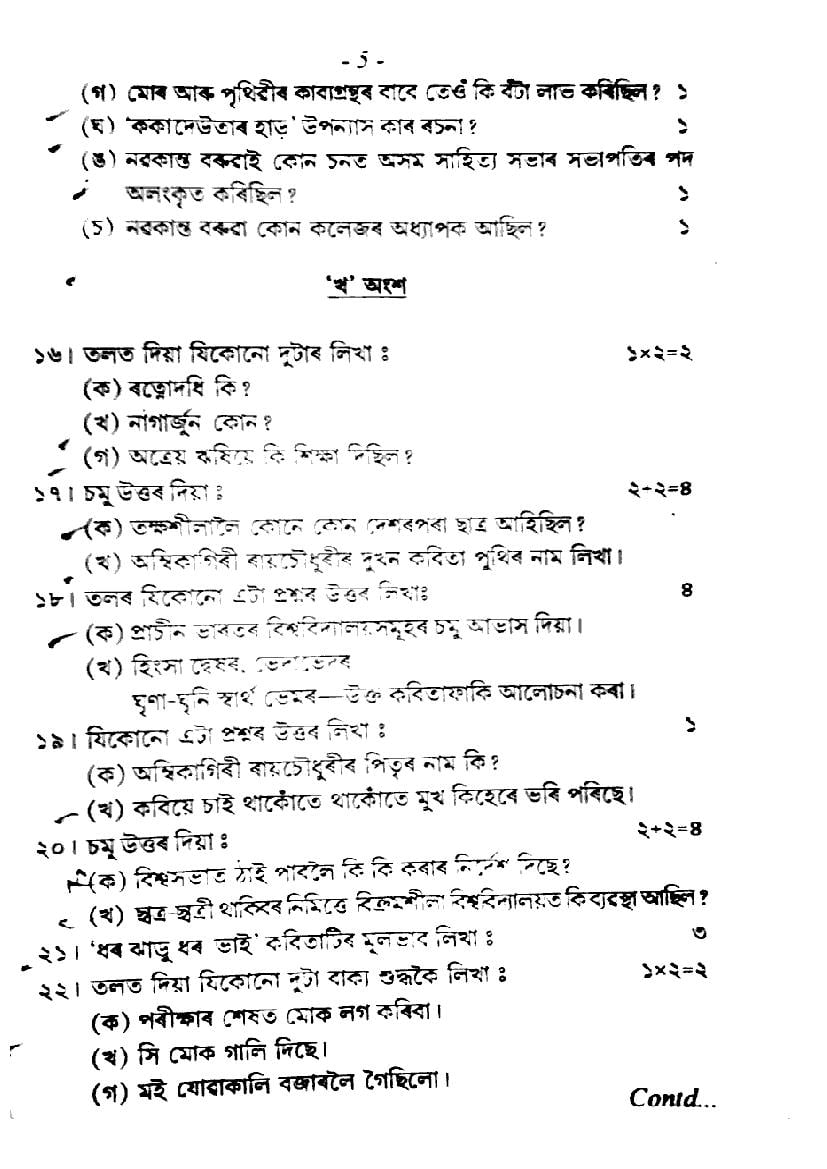 - 5 -
(গ) মোৰ আৰু পৃথিৱীৰ কাব্যগ্ৰন্থৰ বাবে তেওঁ কি বঁটা লাভ কৰিছিল? ১
(ঘ) 'ককাদেউতাৰ হাড়' উপন্যাস কাৰ ৰচনা? ১
(ঙ) নৱকান্ত বৰুৱাই কোন চনত অসম সাহিত্য সভাৰ সভাপতিৰ পদ
অলংকৃত কৰিছিল? ১
(চ) নৱকান্ত বৰুৱা কোন কলেজৰ অধ্যাপক আছিল? ১
'খ' অংশ
১৬। তলত দিয়া যিকোনো দুটাৰ লিখা ঃ ১×২=২
(ক) ৰত্নোদধি কি?
(খ) নাগাৰ্জুন কোন?
(গ) অত্ৰেয় ঋষিয়ে কি শিক্ষা দিছিল?
১৭। চমু উত্তৰ দিয়া ঃ ২+২=৪
(ক) তক্ষশীলালৈ কোনে কোন দেশৰপৰা ছাত্ৰ আহিছিল?
(খ) অম্বিকাগিৰী ৰায়চৌধুৰীৰ দুখন কবিতা পুথিৰ নাম লিখা।
১৮। তলৰ যিকোনো এটা প্ৰশ্নৰ উত্তৰ লিখাঃ ৪
(ক) প্ৰাচীন ভাৰতৰ বিশ্ববিদ্যালয়সমূহৰ চমু আভাস দিয়া।
(খ) হিংসা দ্বেষৰ, ভেদাভেদৰ
ঘৃণা-ঘৃনি স্বাৰ্থ ভেমৰ—উক্ত কবিতাফাকি আলোচনা কৰা।
১৯। যিকোনো এটা প্ৰশ্নৰ উত্তৰ লিখা ঃ ১
(ক) অম্বিকাগিৰী ৰায়চৌধুৰীৰ পিতৃৰ নাম কি?
(খ) কবিয়ে চাই থাকোঁতে থাকোঁতে মুখ কিহেৰে ভৰি পৰিছে।
২০। চমু উত্তৰ দিয়া ঃ ২+২=৪
(ক) বিশ্বসভাত ঠাই পাবলৈ কি কি কৰাৰ নিৰ্দেশ দিছে?
(খ) ছাত্ৰ-ছাত্ৰী থাকিবৰ নিমিত্তে বিক্ৰমশীলা বিশ্ববিদ্যালয়ত কি ব্যৱস্থা আছিল?
২১। 'ধৰ ঝাড়ু ধৰ ভাই' কবিতাটিৰ মূলভাব লিখা ঃ ৩
২২। তলত দিয়া যিকোনো দুটা বাক্য শুদ্ধকৈ লিখা ঃ ১×২=২
(ক) পৰীক্ষাৰ শেষত মোক লগ কৰিবা।
(খ) সি মোক গালি দিছে।
(গ) মই যোৱাকালি বজাৰলৈ গৈছিলো।
Contd...